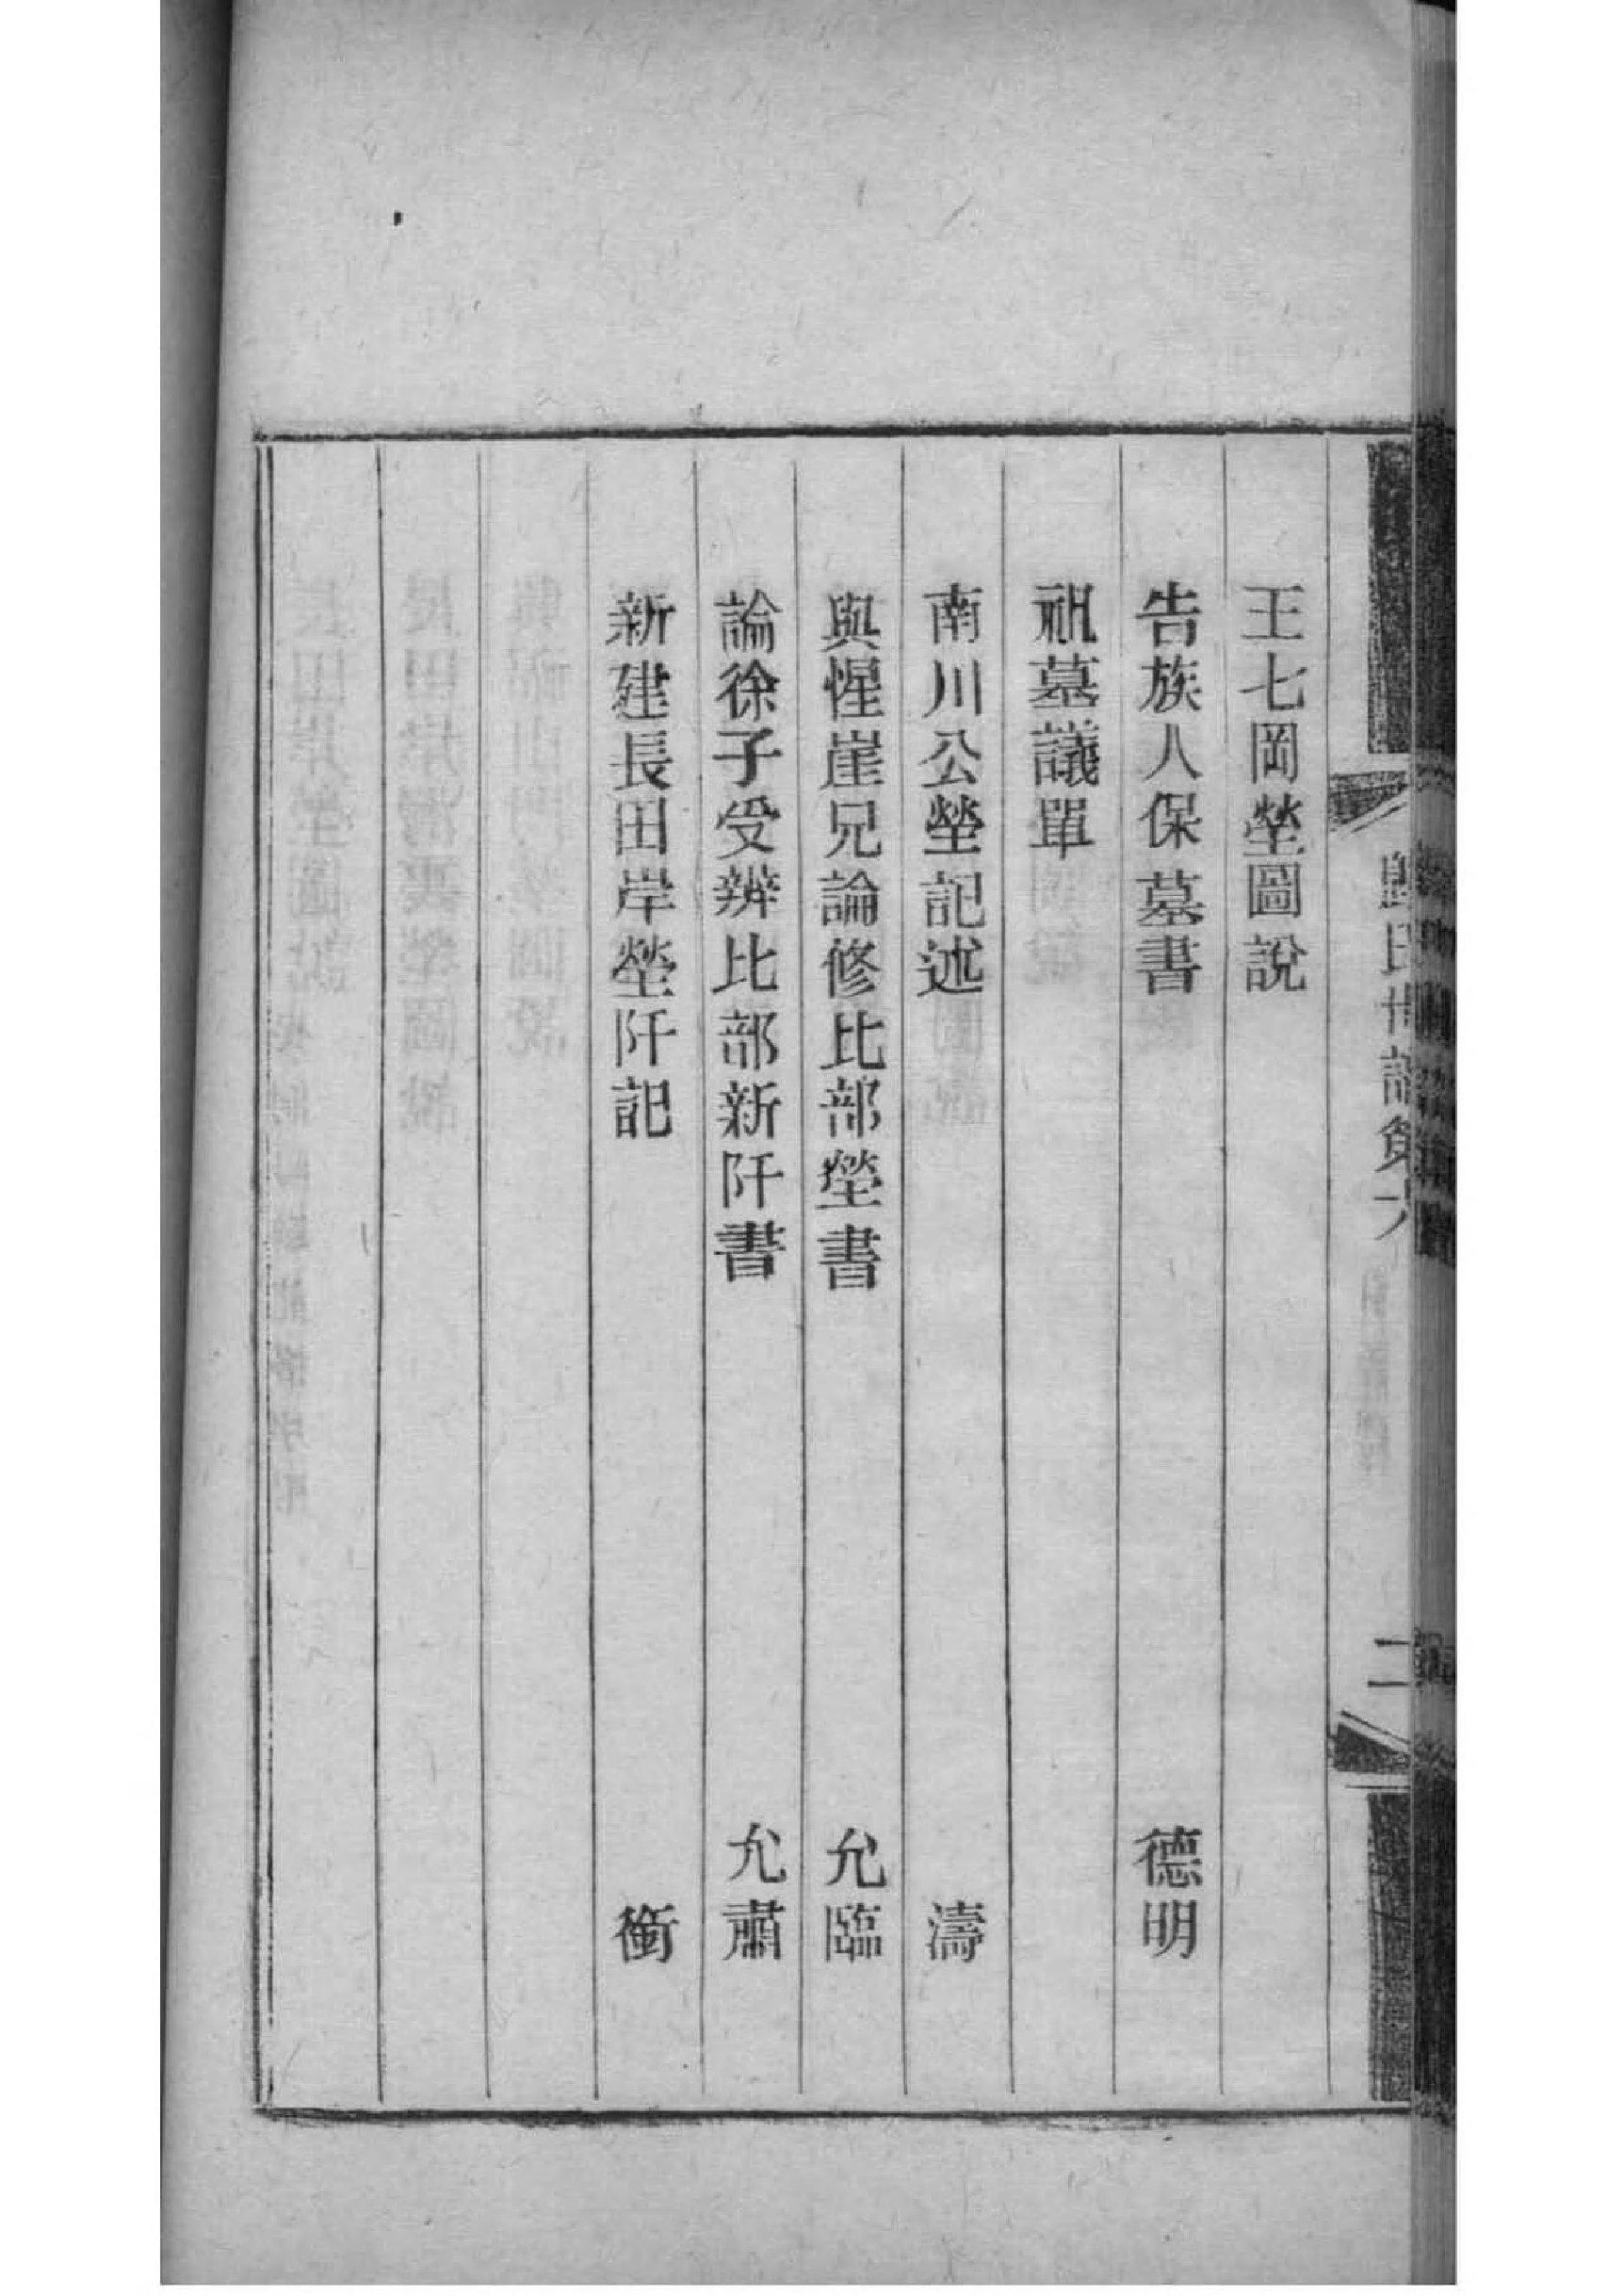 王七岡塋圖說
告族人保墓書 德明
祖墓議單
南川公塋記述 濤
與惺崖兄論修比部塋書 允臨
論徐子受辨比部新阡書 允肅
新建長田岸塋阡記 衡
二